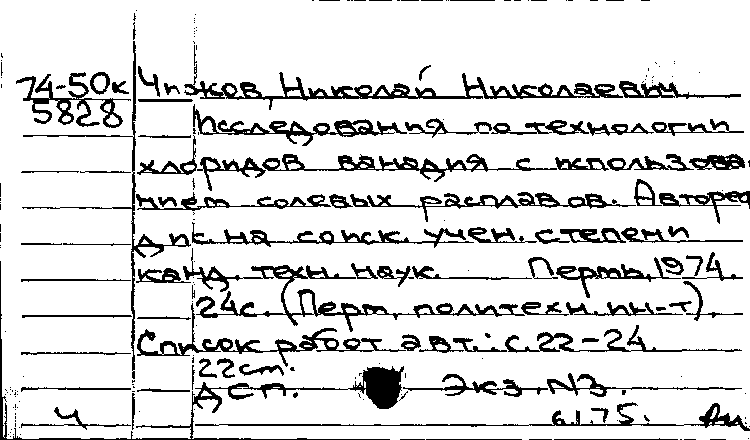 74-50к Чижов, Николай Николаевич.
5828 Исследования по технологии
хлоридов ванадия с использова-
нием солевых расплавов. Автореф.
дис. на соиск. учен. степени
канд. техн. наук. Пермь, 1974.
24с. (Перм. политехн. ин-т).
Список работ авт.: с.22-24.
22см.
ДСП. Экз. №3.
Ч 6.1.75.